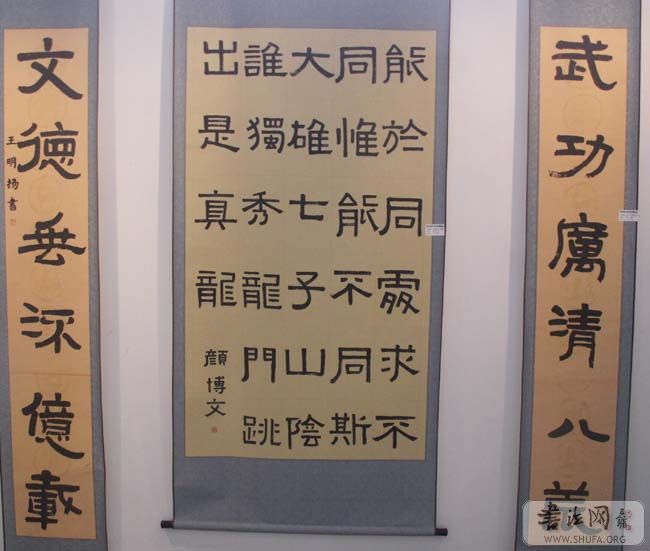 武功厲清八
能於同處求不
同惟能不同斯
大雄七子山陰
誰獨秀龍門跳
出是真龍
顏博文
文德垂深億載
王明揚書
書法网
WWW.SHUFA.ORG